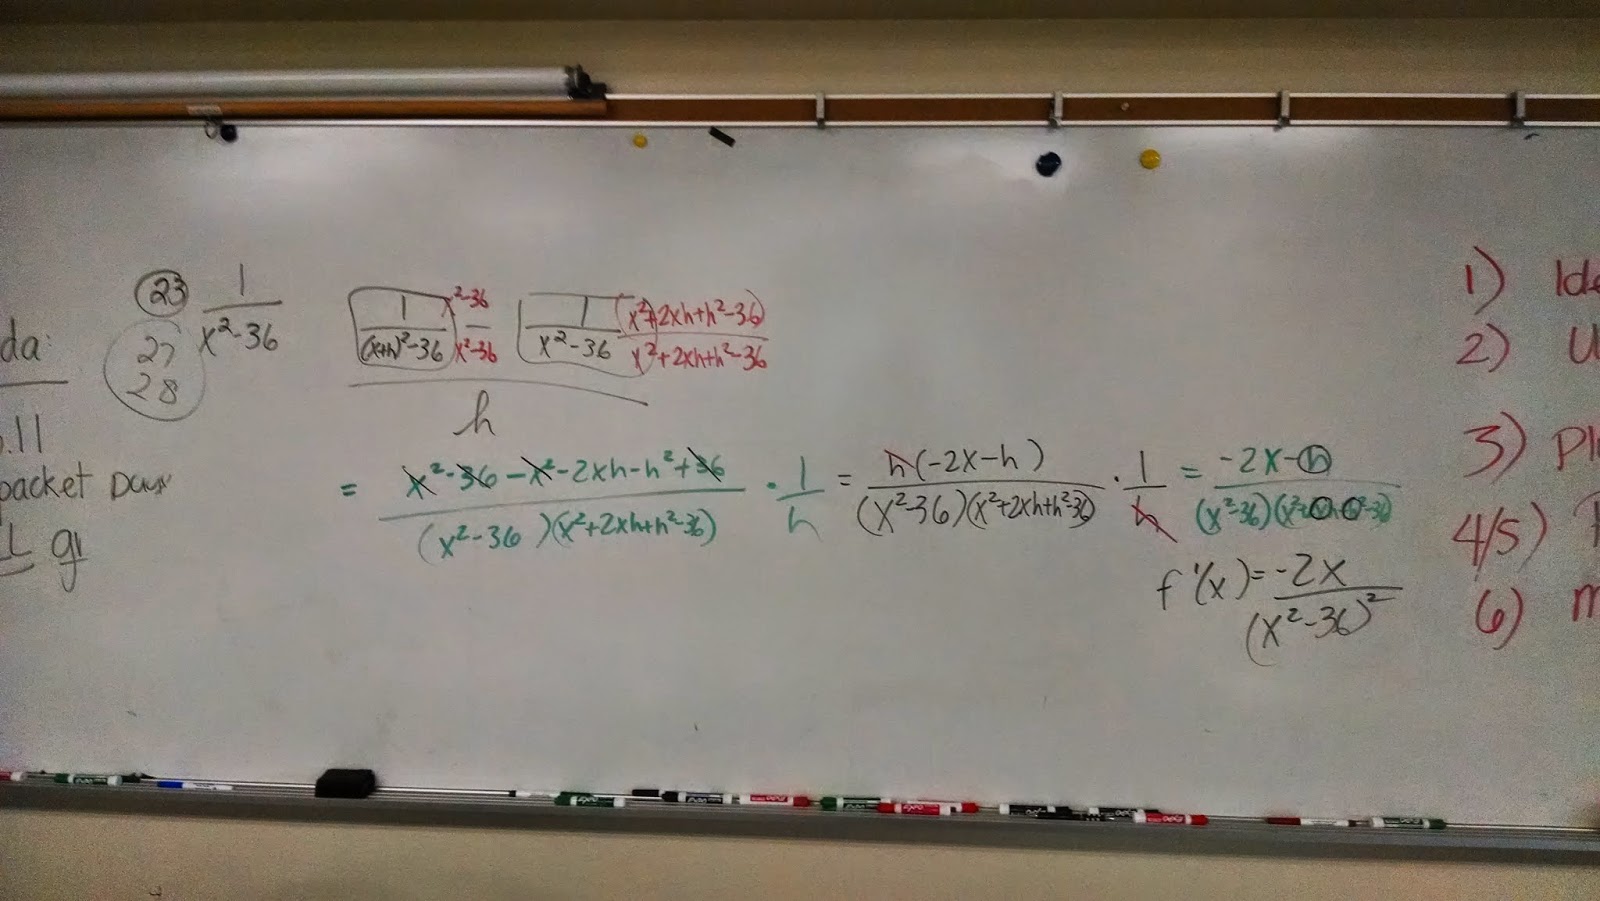 da:
.11
packet Day
g
23 1/(x²-36)
27
28
1/((x+h)²-36) (x²-36)/(x²-36) 1/(x²-36) (x²+2xh+h²-36)/(x²+2xh+h²-36)
h
= (x²-36-x²-2xh-h²+36)/((x²-36)(x²+2xh+h²-36)) · 1/h = h(-2x-h)/((x²-36)(x²+2xh+h²-36)) · 1/h = (-2x-h)/((x²-36)(x²+2xh+h²-36))
f'(x)=-2x/(x²-36)²
1) Ide
2) U
3) Pl
4/5)
6) m
EXPO